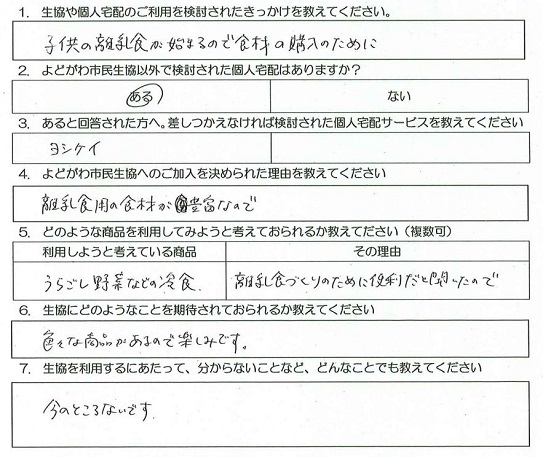 1. 生協や個人宅配のご利用を検討されたきっかけを教えてください。
子供の離乳食が始まるので食材の購入のために
2. よどがわ市民生協以外で検討された個人宅配はありますか？
ある ない
3. あると回答された方へ。差しつかえなければ検討された個人宅配サービスを教えてください
ヨシケイ
4. よどがわ市民生協へのご加入を決められた理由を教えてください
離乳食用の食材が豊富なので
5. どのような商品を利用してみようと考えておられるか教えてください（複数可）
利用しようと考えている商品 その理由
うらごし野菜などの冷食 離乳食づくりのために便利だと聞いたので
6. 生協にどのようなことを期待されておられるか教えてください
色々な商品があるので楽しみです。
7. 生協を利用するにあたって、分からないことなど、どんなことでも教えてください
今のところないです